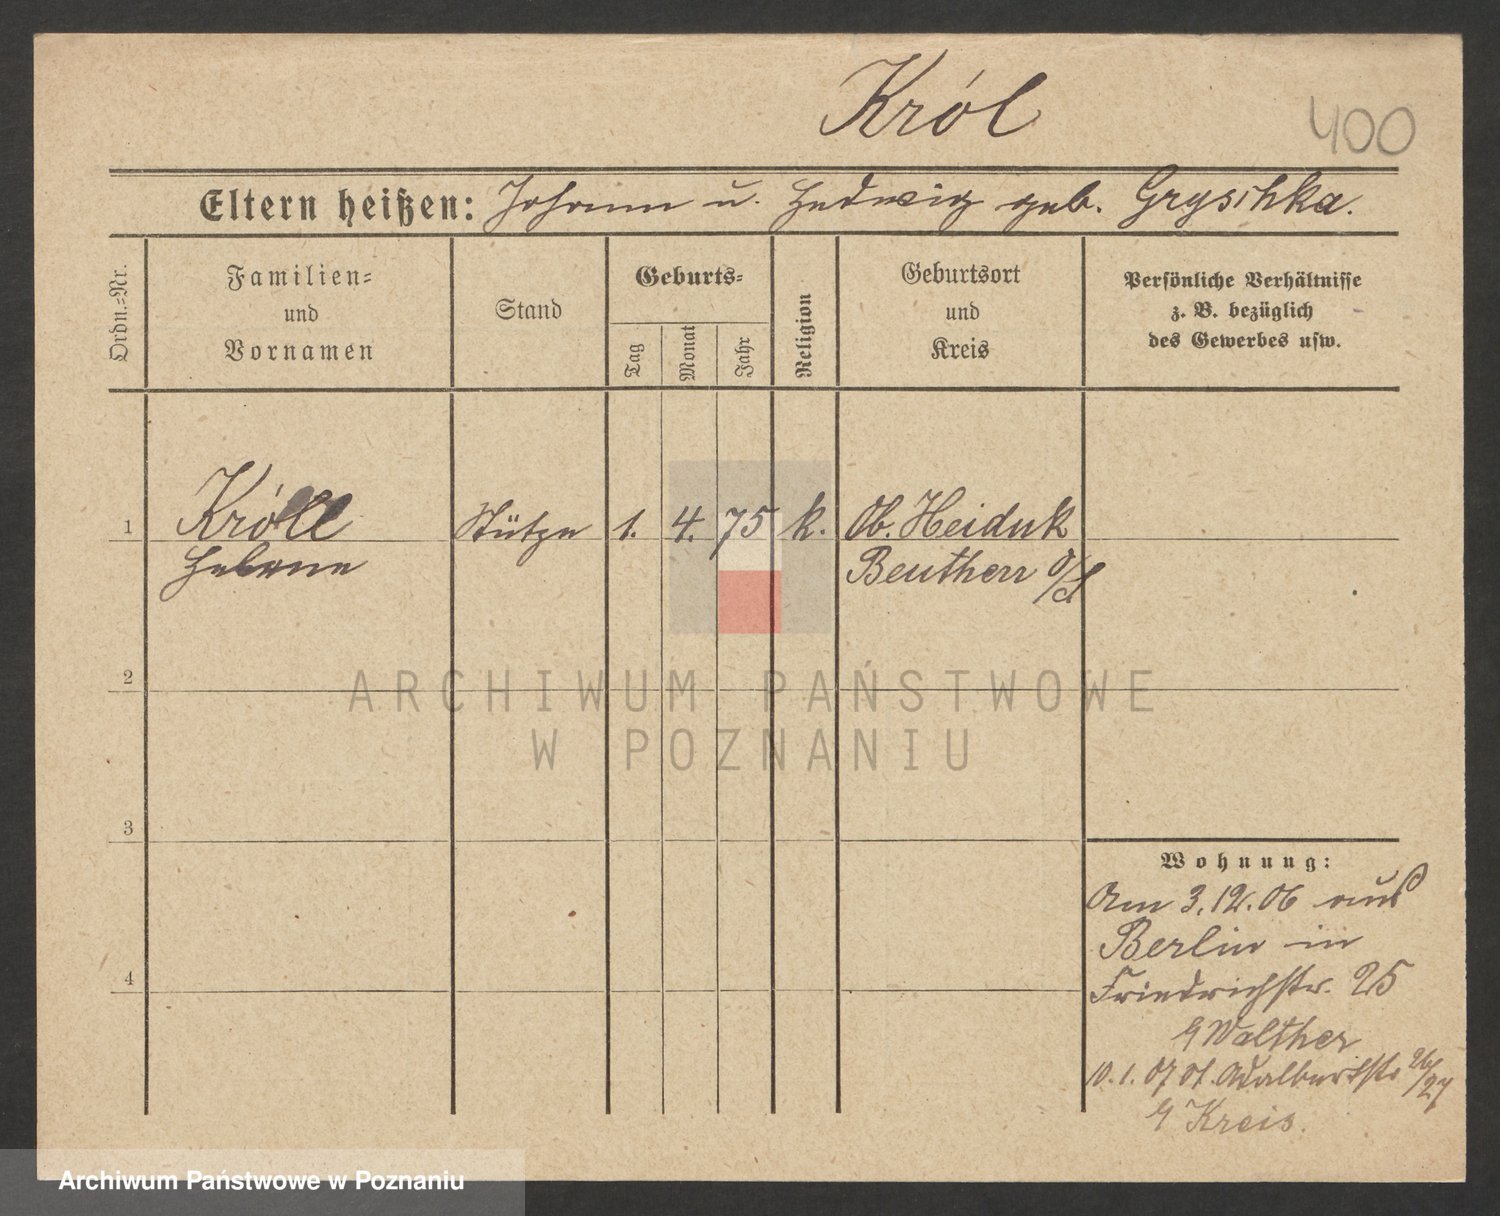 Król
400
Eltern heißen: Johann u. Hedwig geb. Gryschka.
Ordn.=Nr.
Familien=
und
Vornamen
Stand
Geburts=
Tag
Monat
Jahr
Religion
Geburtsort
und
Kreis
Persönliche Verhältnisse
z. B. bezüglich
des Gewerbes usw.
1 Król Stütze 1. 4. 75 k. Ob. Heiduk
Helene Beuthen O/S
2
3
4
Wohnung:
Am 3.12.06 aus
Berlin in
Friedrichstr. 25
Walther
10.1.07 St. Adalbertstr 26/27
Kreis.
ARCHIWUM PAŃSTWOWE
W POZNANIU
Archiwum Państwowe w Poznaniu